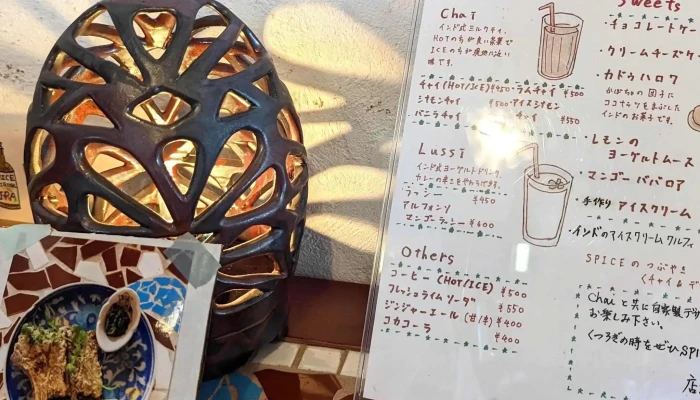 Chaï
インド式ミルクティ。
HOTのちが良い茶葉で
ICEのちが現地に近い
味です。
チャイ(HOT/ICE)¥450・ラムチャイ ¥500
シナモンチャイ ¥500・アイスシナモン
バニラチャイ チャイ ¥550
Lussi
インド式ヨーグルトドリンク。
カレーの辛さをやわらげます。
ラッシー ¥450
アルフォンソ
マンゴーラッシー ¥600
Others
コーヒー(HOT/ICE) ¥500
フレッシュライムソーダ ¥550
ジンジャーエール(甘/辛) ¥400
コカコーラ ¥400
Sweets
・チョコレートケー
・クリームチーズケー
・カドゥハロワ
かぼちゃの団子に
ココナッツをまぶした
インドのお菓子です。
・レモンの
ヨーグルトムース
・マンゴーババロア
・手作りアイスクリーム
・インドのアイスクリームクルフィ
SPICEのつぶやき
〈チャイ&デ
Chaiと共に自家製デザ
お楽しみ下さい。
くつろぎの時をぜひSPI
店
IPA